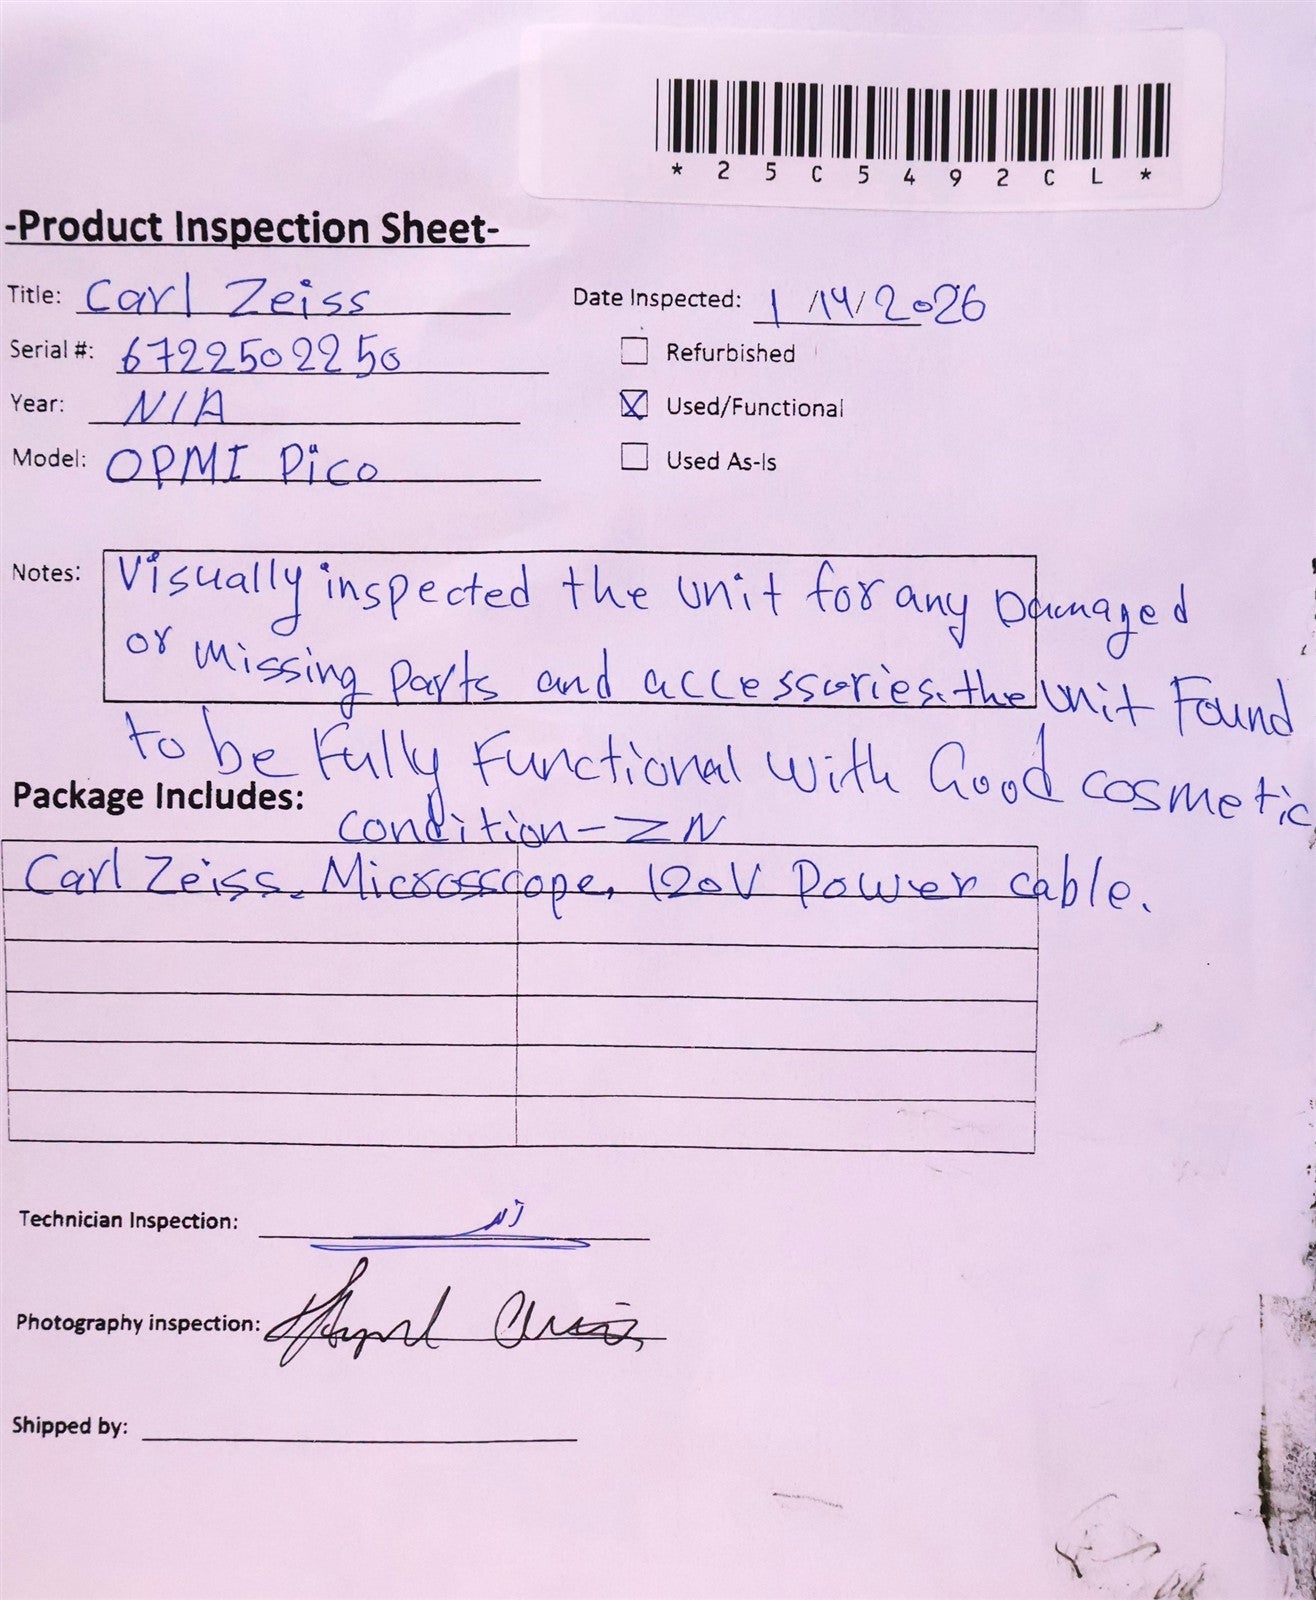 * 2 5 C 5 4 9 2 C L *
-Product Inspection Sheet-
Title: Carl Zeiss
Date Inspected: 1/14/2026
Serial #: 6722502250
Refurbished
Year: N/A
Used/Functional
Model: OPMI Pico
Used As-Is
Notes: Visually inspected the unit for any Damaged
or missing parts and accessories. the unit Found
to be Fully Functional with Good cosmetic
condition-ZN
Package Includes:
Carl Zeiss. Microsscope. 120V Power cable.
Technician Inspection:
Photography inspection:
Shipped by: